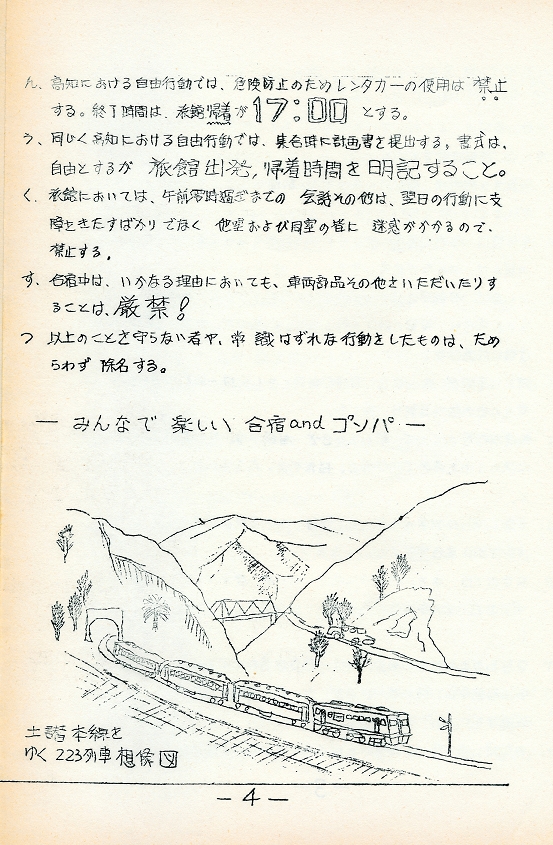 ん、高知における自由行動では、危険防止のためレンタカーの使用は禁止
する。終了時間は、旅館帰着が17:00とする。
う、同じく高知における自由行動では、集合時に計画書を提出する。書式は、
自由とするが 旅館出発,帰着時間を明記すること。
く、旅館においては、午前零時過ぎまでの 会話その他は、翌日の行動に支
障をきたすばかりでなく 他室および同室の皆に 迷惑がかかるので、
禁止する。
す、合宿中は、いかなる理由においても、車両部品その他さいただいたりす
ることは、厳禁!
つ 以上のことを守らない者や、常識はずれな行動をしたものは、ため
らわず 除名する。
— みんなで 楽しい 合宿and コンパ —
土讃本線を
ゆく 223列車 想像図
— 4 —